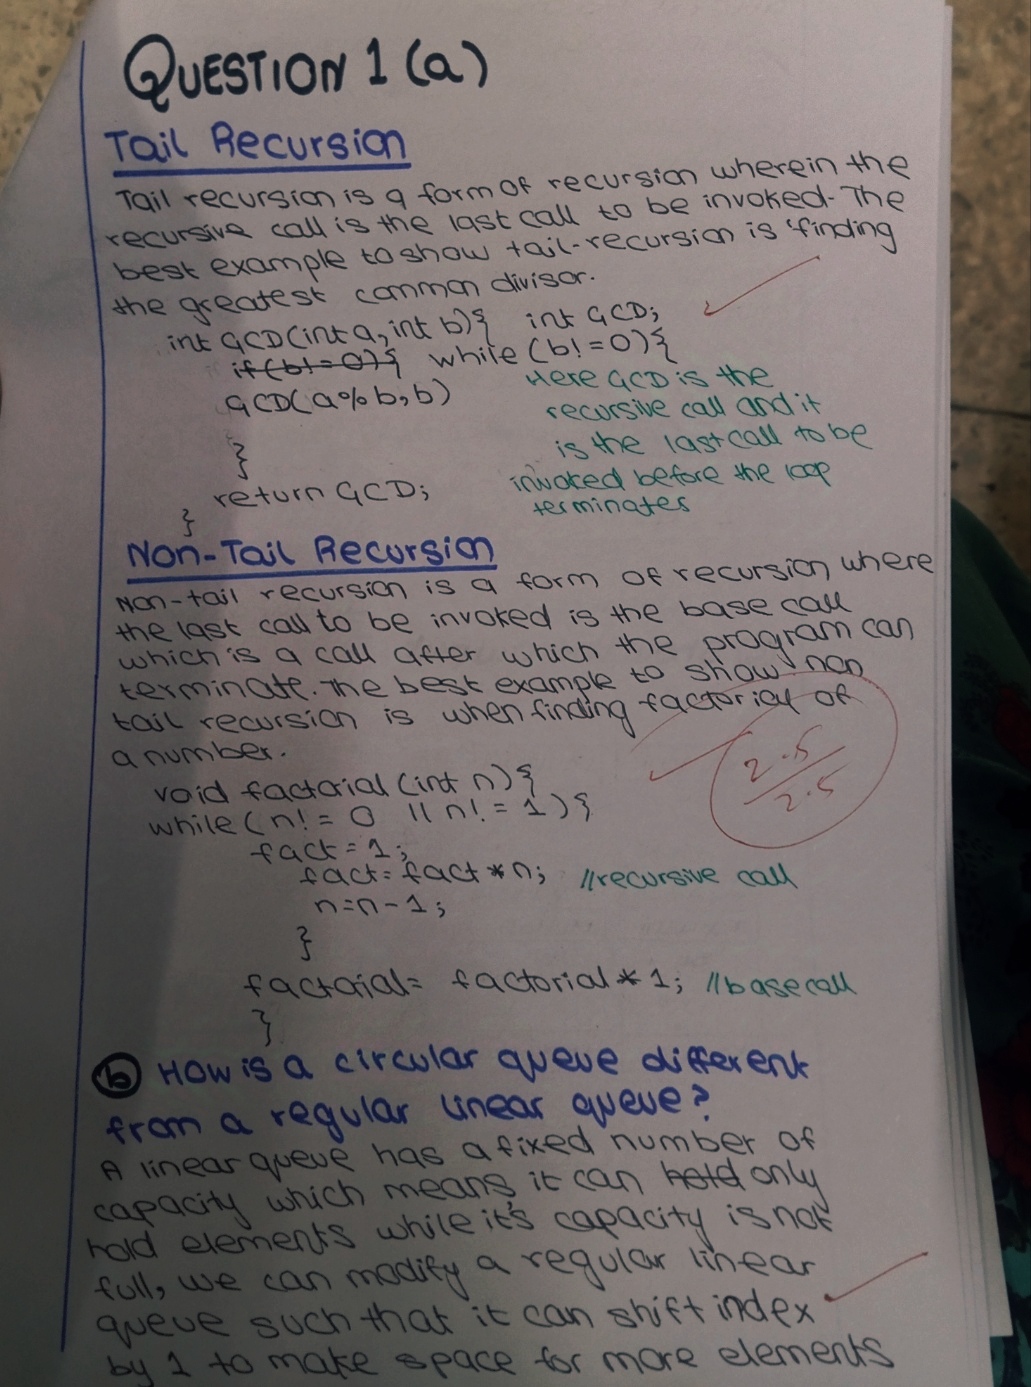 QUESTION 1 (a)
Tail Recursion
Tail recursion is a form of recursion wherein the
recursive call is the last call to be invoked. The
best example to show tail-recursion is 'finding
the greatest common divisor.
int GCD(int a, int b){ int GCD;
if(b!=0){ while (b!=0){
GCD(a%b,b)
Here GCD is the
recursive call and it
is the last call to be
invoked before the loop
terminates
}
return GCD;
}
Non-Tail Recursion
Non-tail recursion is a form of recursion where
the last call to be invoked is the base call
which is a call after which the program can
terminate. The best example to show non
tail recursion is when finding factorial of
a number.
2.5/2.5
void factorial (int n){
while (n!=0 || n!=1){
fact=1;
fact=fact*n; //recursive call
n=n-1;
}
factorial= factorial*1; //base call
}
(b) How is a circular queue different
from a regular linear queue?
A linear queue has a fixed number of
capacity which means it can hold only
hold elements while it's capacity is not
full, we can modify a regular linear
queue such that it can shift index
by 1 to make space for more elements